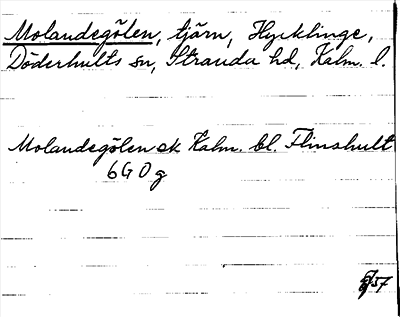 Molandegölen, tjärn, Hycklinge,
Döderhults sn, Stranda hd, Kalm. l.
Molandegölen ek Kalm. bl. Flinshult
6G0g
57